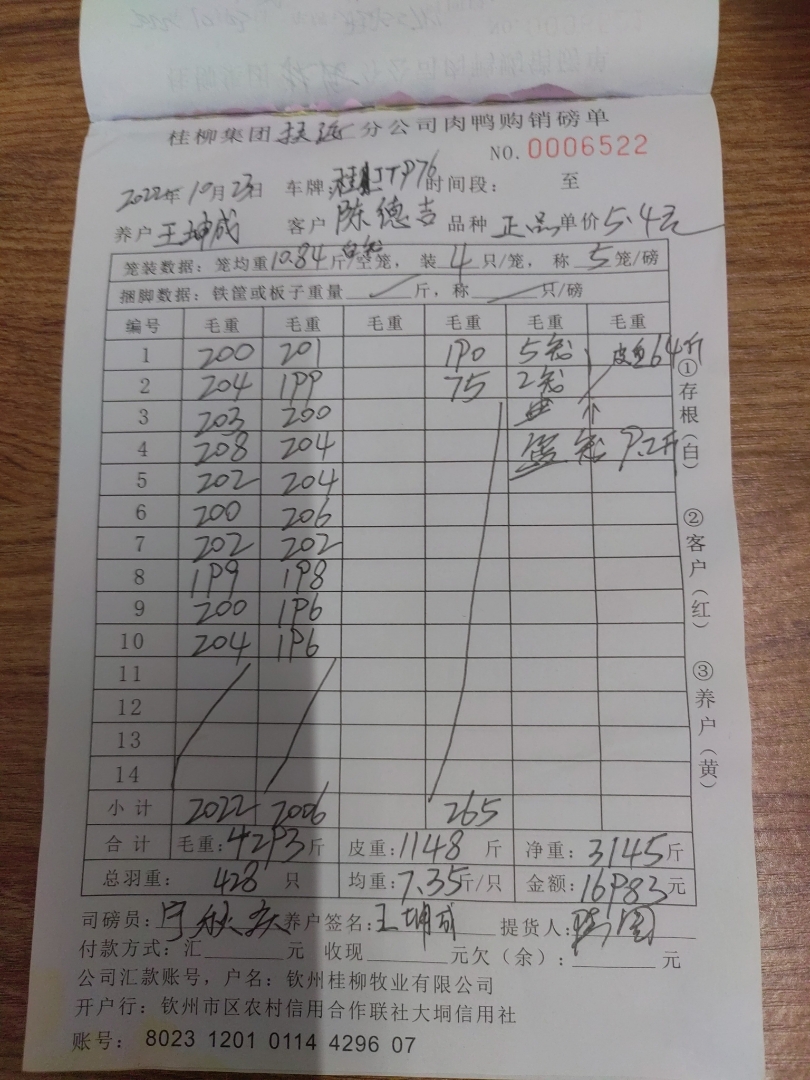 桂柳集团 分公司肉鸭购销磅单
NO. 0006522
2022年10月23日 车牌: 时间段: 至
养户 王坤成 客户 陈德吉 品种 正品 单价 5.4元
笼装数据: 笼均重10.84斤/空笼, 装 4 只/笼, 称 5 笼/磅
捆脚数据: 铁筐或板子重量 斤, 称 只/磅
编号 毛重 毛重 毛重 毛重 毛重 毛重
1 200 201 190 5笼 64斤
2 204 199 75 2笼
3 203 200
4 208 204 笼 9.2斤
5 202 204
6 200 206
7 202 202
8 199 198
9 200 196
10 204 196
11
12
13
14
小计 2022 2006 265
合计 毛重: 4293斤 皮重: 1148 斤 净重: 3145斤
总羽重: 428 只 均重: 7.35斤/只 金额: 16983元
司磅员: 养户签名: 王坤成 提货人:
付款方式: 汇 元 收现 元欠(余): 元
公司汇款账号, 户名: 钦州桂柳牧业有限公司
开户行: 钦州市区农村信用合作联社大垌信用社
账号: 8023 1201 0114 4296 07
①存根(白)
②客户(红)
③养户(黄)